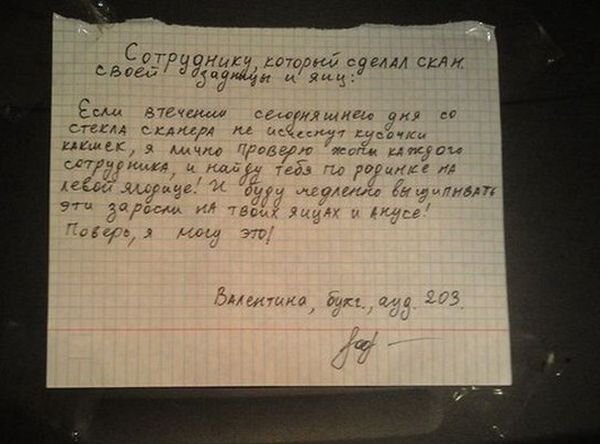 Сотруднику, который сделал скан
своей задницы и яиц:
Если втечении сегодняшнего дня со
стекла сканера не исчеснут кусочки
какшек, я лично проверю жопы каждого
сотрудника, и найду тебя по родинке на
левой ягодице! И буду медленно выщипывать
эти заросли на твоих яицах и анусе!
Поверь, я могу это!
Валентина, бухг., ауд. 203.